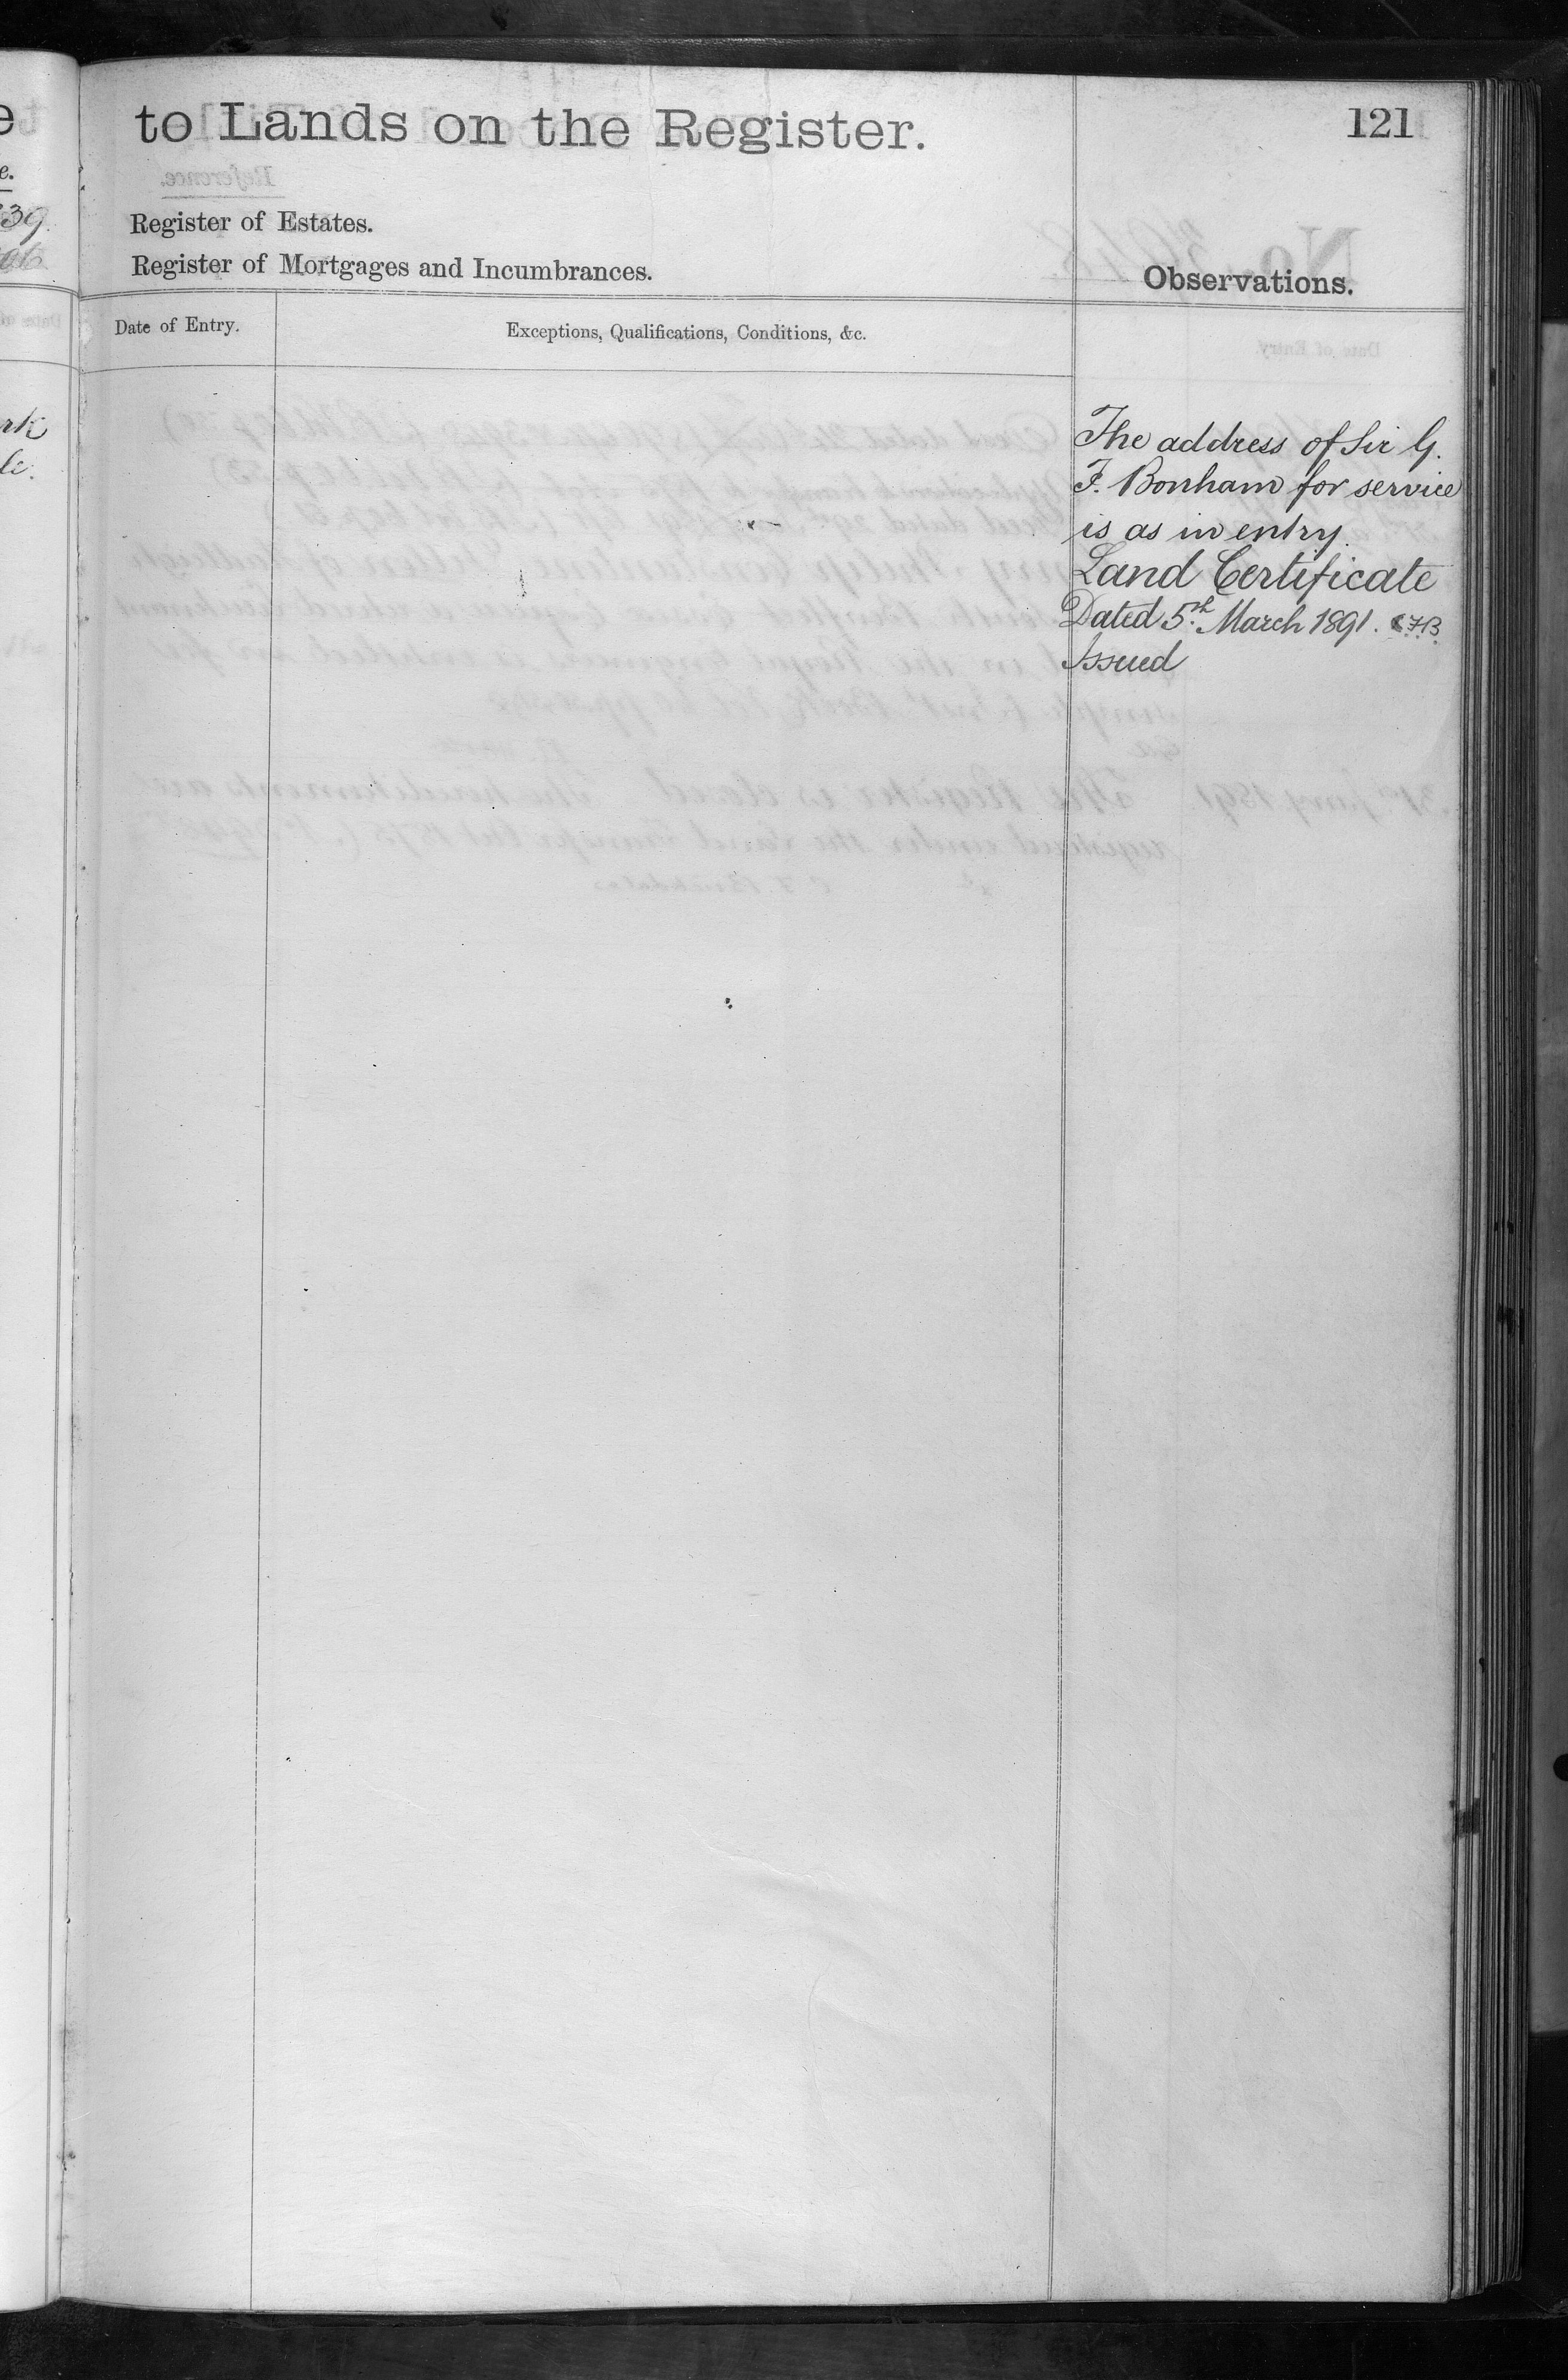 to Lands on the Register.
121
Register of Estates.
Register of Mortgages and Incumbrances.
Observations.
Date of Entry.
Exceptions, Qualifications, Conditions, &c.
The address of Sir G.
F. Bonham for service
is as in entry.
Land Certificate
Dated 5.th March 1891. CFB.
Issued